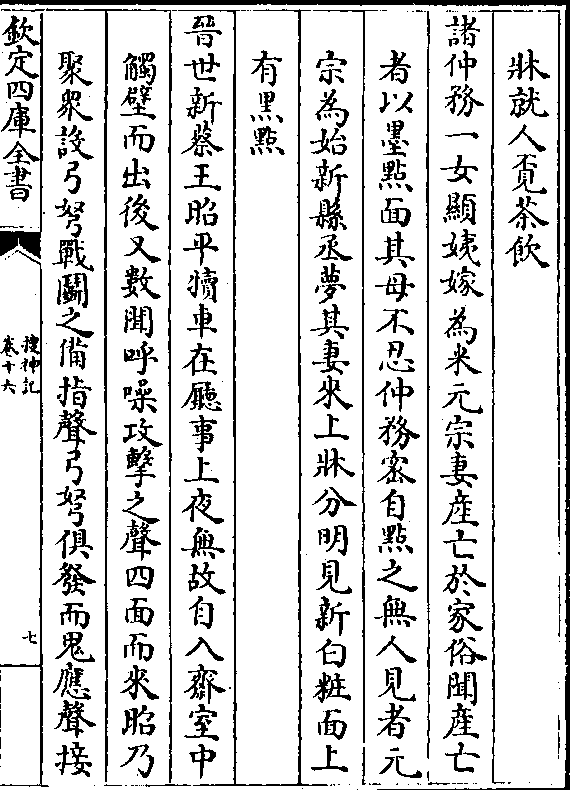 牀就人覓茶飲
諸仲務一女顯姨嫁為米元宗妻産亡於家俗聞産亡
者以墨點面其母不忍仲務密自點之無人見者元
宗為始新縣丞夢其妻來上牀分明見新白粧面上
有黒點
晉世新蔡王昭平犢車在廳事上夜無故自入齋室中
觸壁而出後又數聞呼噪攻擊之聲四面而來昭乃
聚衆設弓弩戰鬭之備指聲弓弩俱發而鬼應聲接
欽定四庫全書
搜神記
卷十六
七